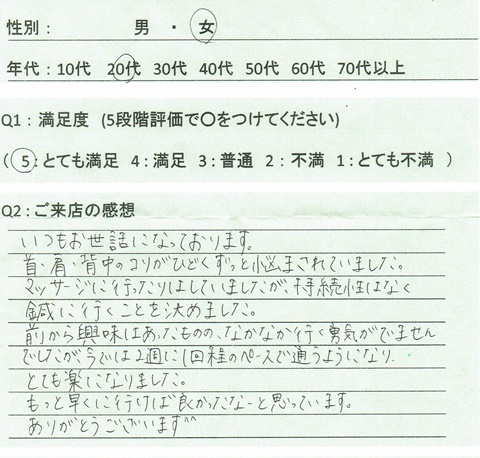 性別： 男 ・ 女
年代：10代 20代 30代 40代 50代 60代 70代以上
Q1：満足度 (5段階評価で〇をつけてください)
( 5：とても満足 4：満足 3：普通 2：不満 1：とても不満 )
Q2：ご来店の感想
いつもお世話になっております。
首・肩・背中のコリがひどくずっと悩まされていました。
マッサージに行ったりはしていましたが、持続性はなく
鍼に行くことを決めました。
前から興味はあったものの、なかなか行く勇気がでません
でしたが、今では2週に1回程のペースで通うようになり、
とても楽になりました。
もっと早くに行けば良かったなーと思っています。
ありがとうございます^^